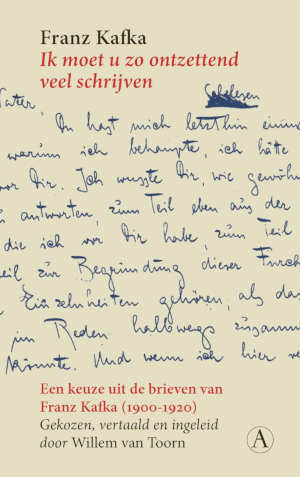 Franz Kafka
Ik moet u zo ontzettend
veel schrijven
Schelesen
Vater,
Du hast mich letzthin einm
warum ich behaupte, ich hätte
vor Dir. Ich wusste Dir, wie gewöhn
u antworten, zum Teil eben aus der
die ich vor Dir habe, zum Teil
eil zur Begründung dieser Furch
Einzelnheiten gehören, als das
im Reden halbwegs zusamm
könnte. Und wenn ich hier ve
Een keuze uit de brieven van
Franz Kafka (1900-1920)
Gekozen, vertaald en ingeleid
door Willem van Toorn
A